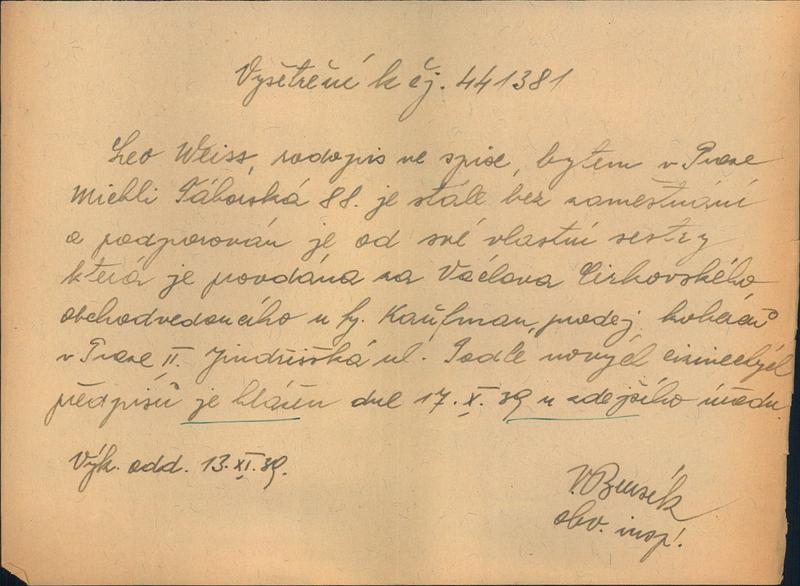 Vyšetření k čj. 441381
Leo Weiss, rodopis ve spise, bytem v Praze
Michli Táborská 88. je stále bez zaměstnání
a podporován je od své vlastní sestry
která je provdána za Václava Cirkovského
obchodvedoucího u fy. Kaufman, prodej koberců
v Praze II. Jindřišská ul. Podle nových
předpisů je hlášen dne 17. X. 39 u zdejšího úřadu.
Výk. odd. 13. XI. 39.
obv. insp.